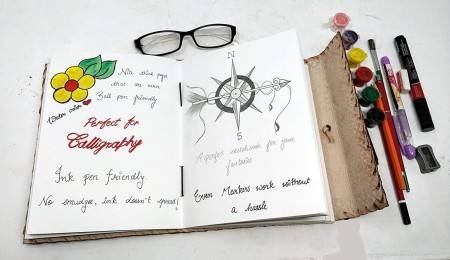 Nice thick pages
that are even
Ball pen friendly
Water color
Perfect for
Calligraphy
Ink pen friendly
No smudge, ink doesn't spread!
N
S
A perfect sketchbook for your
fantasies
Even Markers work without
a hassle